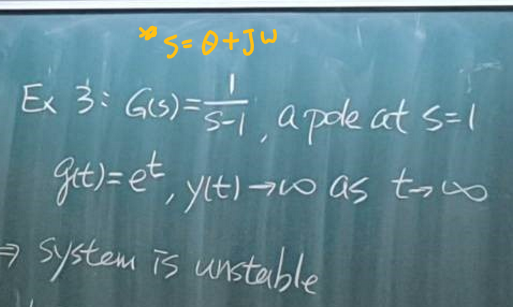 * S = θ + Jω
Ex 3: G(s) = 1/(s-1), a pole at s=1
g(t) = e^t, y(t) → ∞ as t → ∞
⇒ system is unstable